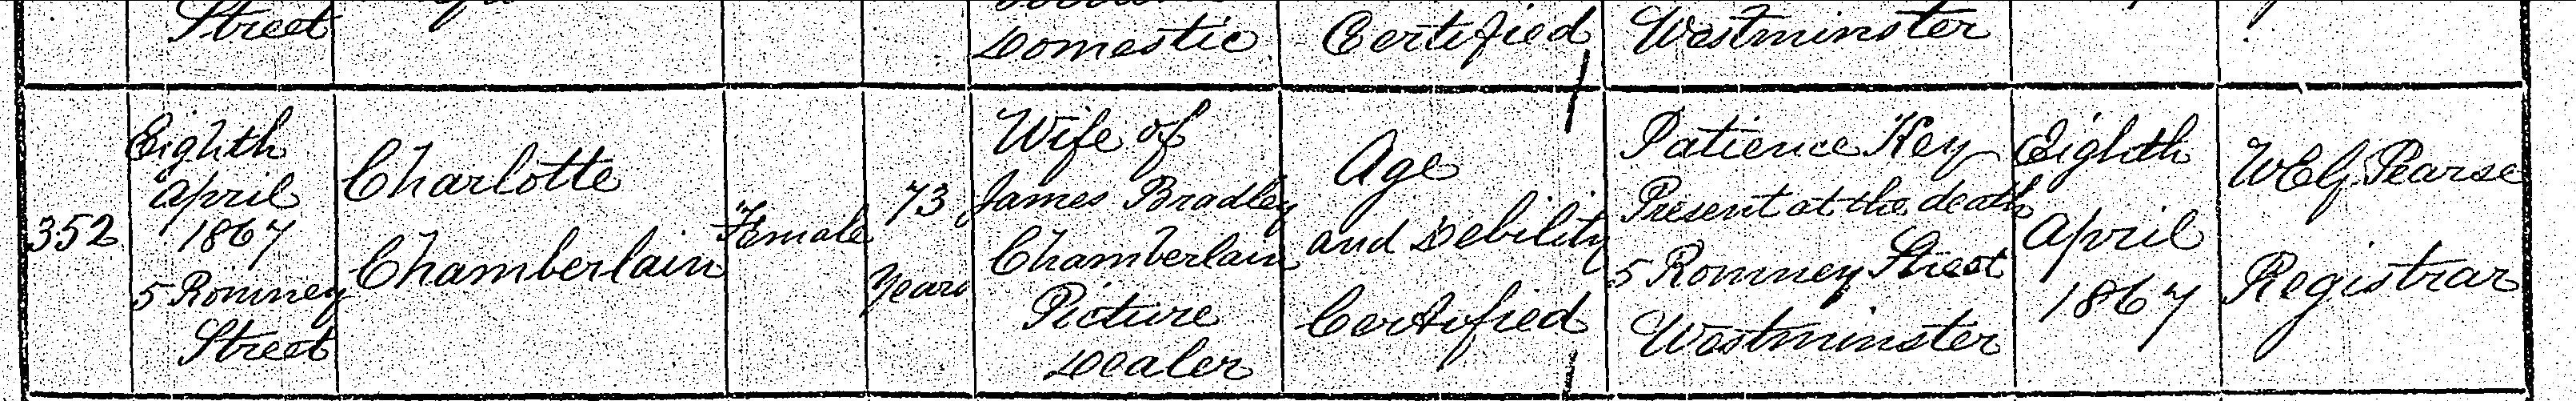 Street
Domestic
Certified
Westminster
352
Eighth
April
1867
5 Romney
Street
Charlotte
Chamberlain
Female
73
Years
Wife of
James Bradley
Chamberlain
Picture
Dealer
Age
and Debility
Certified
Patience Key
Present at the death
5 Romney Street
Westminster
Eighth
April
1867
Pearse
Registrar